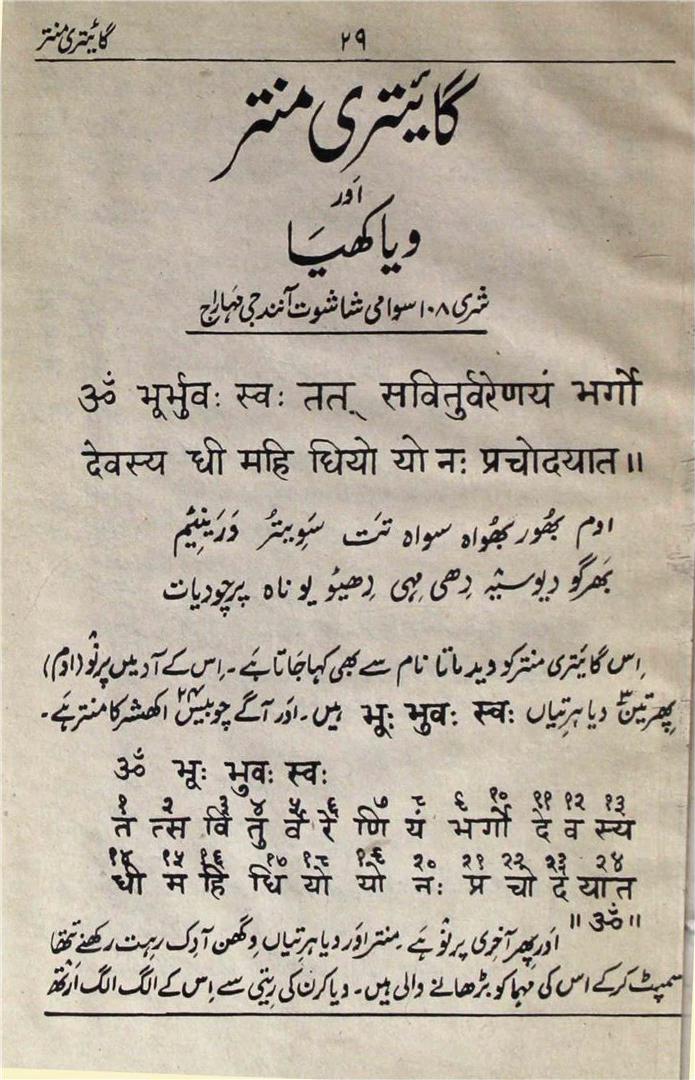 گائیتری منتر ۲۹
گائیتری منتر
اَور
ویاکھیَا
شری ۱۰۸ سوامی شاشوت آنند جی مہاراج
ॐ भूर्भुवः स्वः तत् सवितुर्वरेणयं भर्गो
देवस्य धी महि धियो यो नः प्रचोदयात॥
اوم بھُور بھُواہ سواہ تَت سَوِیتُر وَرَینِیَم
بَھرگو دیوسیَہ دِھی مِہی دِھیئو یو ناہ پرچودیات
اِس گائیتری منتر کو وید ماتا نام سے بھی کہا جَاتا ہَے۔ اِس کے آد میں پرنَو (اوم)
پھِر تین۳ ویاہرتیاں भूः भुवः स्वः ہیں۔ اَور آگے چوبیس۲۴ اکھشر کا منتر ہَے۔
ॐ भूः भुवः स्वः
१ २ ३ ४ ५ ६ ७ ८ ९ १० ११ १२ १३
त त्स वि तु र्व रे णि यं भ र्गो दे व स्य
१४ १५ १६ १७ १८ १९ २० २१ २२ २३ २४
धी म हि धि यो यो नः प्र चो द यात
॥ॐ॥
اَور پھِر آخری پرنَو ہَے۔ منتر اَور ویاہرتیاں وِگھن آدِک رہت رکھنے تتھا
سمپٹ کر کے اس کی مہما کو بڑھانے والی ہیں۔ ویاکرن کی ریتی سے اِس کے الگ الگ اَرتھ